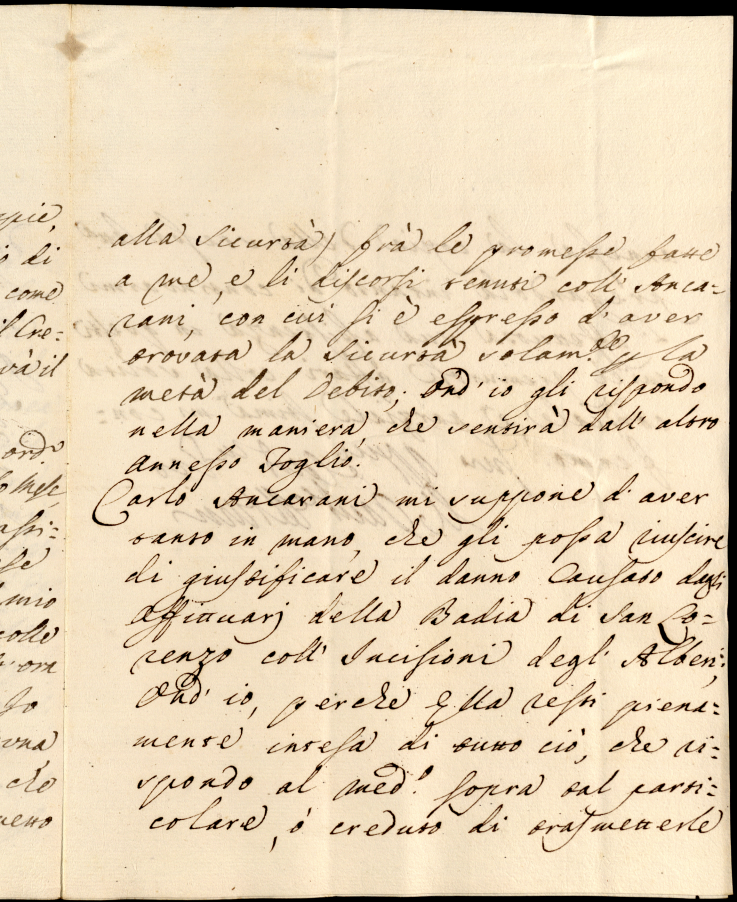 alla Sicurtà) frà le promesse fatte
a me, e li discorsi tenuti coll' Anca=
rani, con cui si è espresso d' aver
trovata la Sicurtà solam.te p la
metà del Debito; Ond' io gli rispondo
nella maniera, che sentirà dall' altro
annesso Foglio.
Carlo Ancarani mi suppone d' aver
tanto in mano, che gli possa riuscire
di giustificare il danno Causato dagli
Affittuarj della Badia di San Lo=
renzo coll' Incisioni degl' Alberi;
Ond' io, perche Ella resti piena=
mente intesa di tutto ciò, che ri=
spondo al med.o sopra tal parti=
colare, ò creduto di trasmetterle
come
che